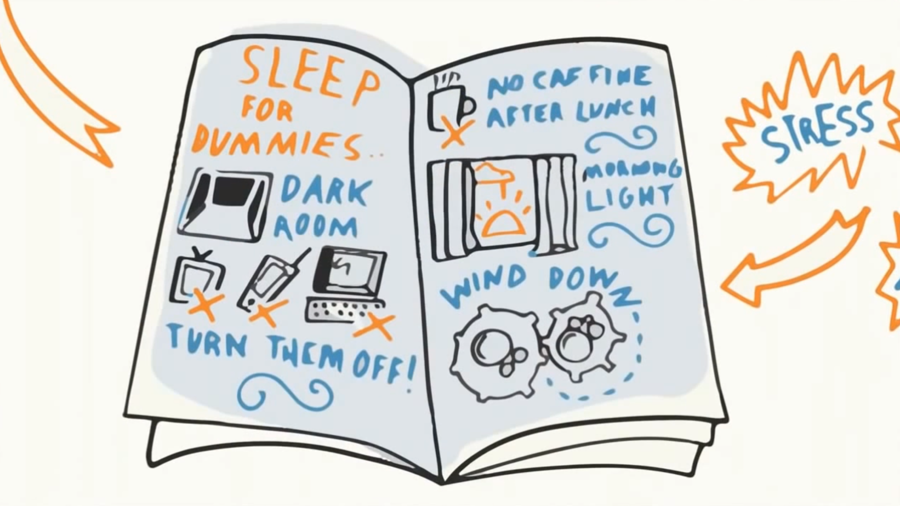 SLEEP
FOR
DUMMIES..
DARK
ROOM
TURN THEM OFF!
NO CAFFINE
AFTER LUNCH
MORNING
LIGHT
WIND DOWN
STRESS